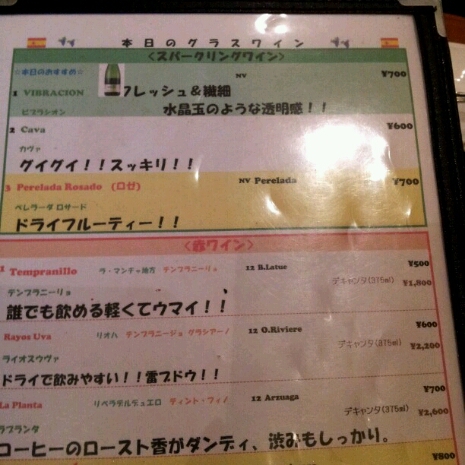 本日のグラスワイン
<スパークリングワイン>
☆本日のおすすめ☆ NV ¥700
1 VIBRACION フレッシュ&繊細
ビブラシオン 水晶玉のような透明感!!
2 Cava ¥600
カヴァ
グイグイ!!スッキリ!!
3 Perelada Rosado (ロゼ) NV Perelada ¥700
ペレラーダ ロサード
ドライフルーティー!!
<赤ワイン>
1 Tempranillo ラ・マンチャ地方 テンプラニーリョ 12 B.Latue ¥500
デキャンタ(375ml) ¥1,800
テンプラニーリョ
誰でも飲める軽くてウマイ!!
Rayos Uva リオハ テンプラニージョ グラシアーノ 12 O.Riviere ¥600
デキャンタ(375ml) ¥2,200
ライオスウヴァ
ドライで飲みやすい!!雷ブドウ!!
La Planta リベラデルデュエロ ティント・フィノ 12 Arzuaga ¥700
デキャンタ(375ml) ¥2,600
ラプランタ
コーヒーのロースト香がダンディ、渋みもしっかり。
¥800